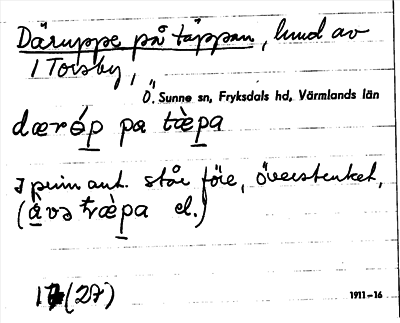 Däruppe på täppan, hund av
1 Torsby,
Ö. Sunne sn, Fryksdals hd, Värmlands län
dæróp pa tæ̀pa
I prim. ant. står före, överstruket,
(å̀və træ̀pa el.)
(27)
1911–16